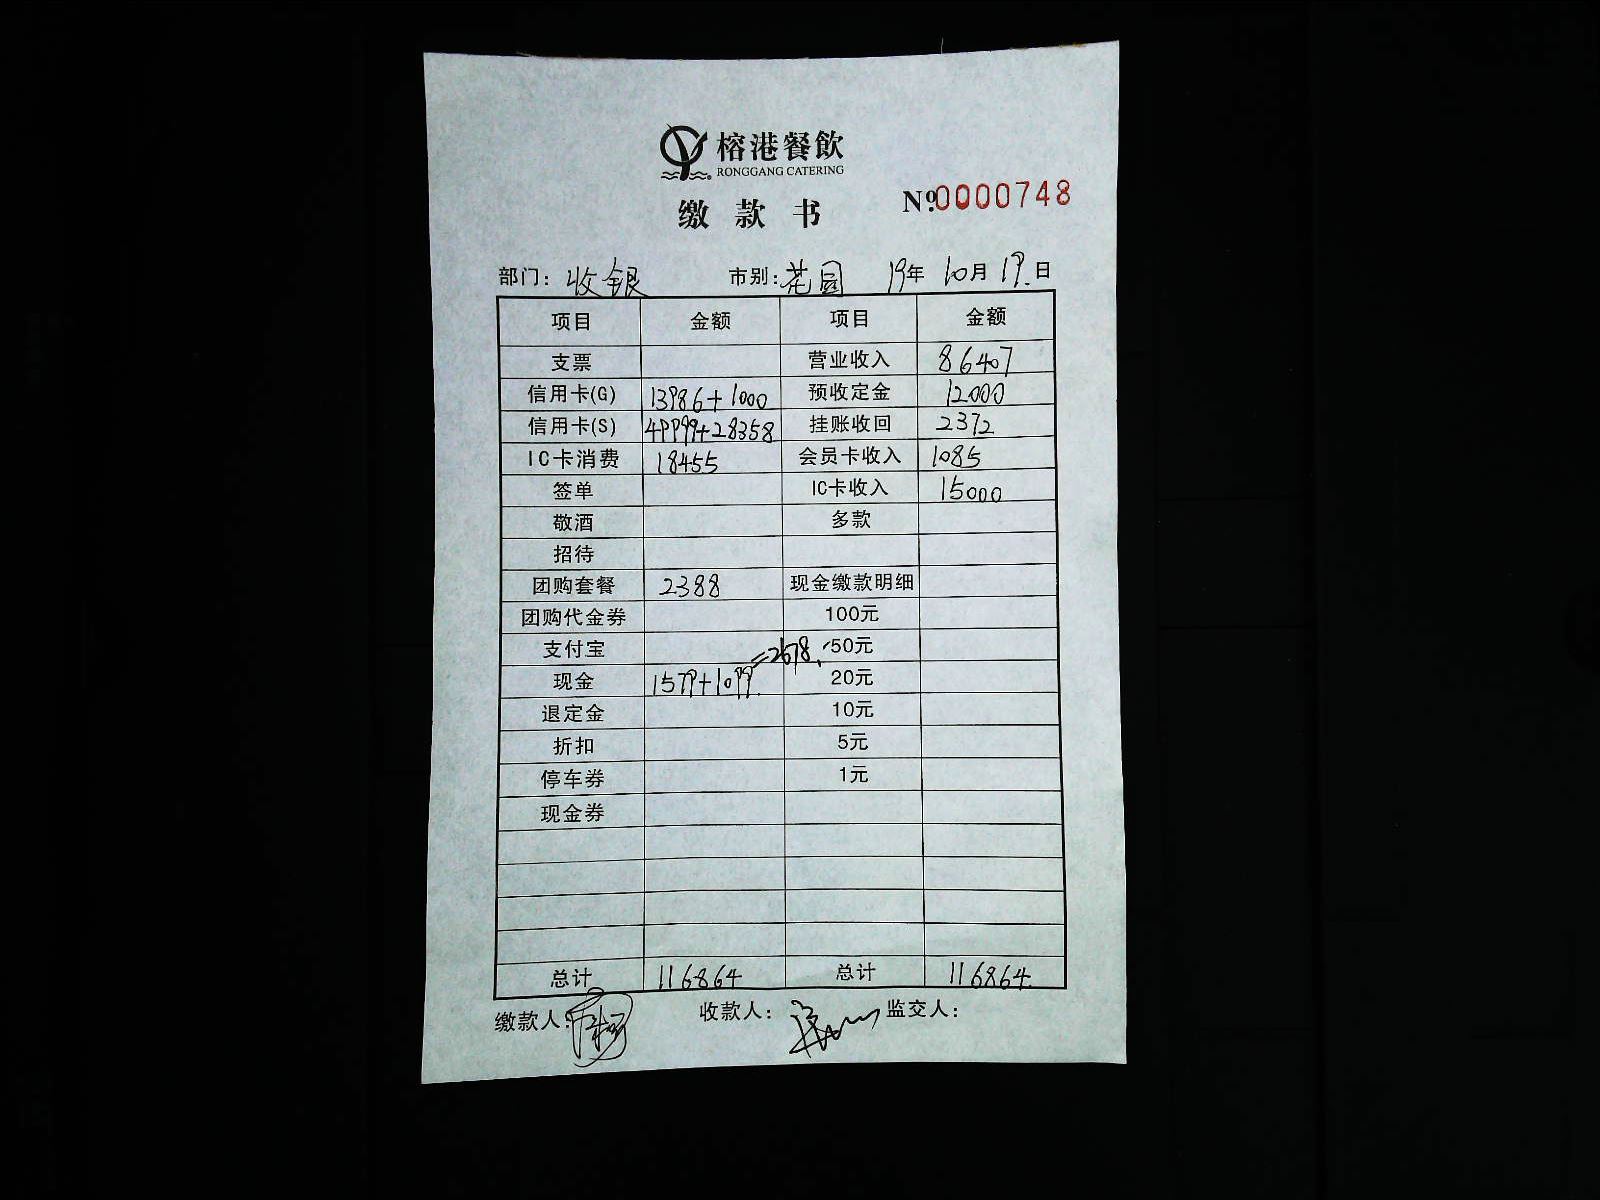 榕港餐飲
RONGGANG CATERING
缴款书
№0000748
部门：收银 市别：花园 19年10月19日
项目 金额 项目 金额
支票 营业收入 86407
信用卡(G) 13986+1000 预收定金 12000
信用卡(S) 49999+28358 挂账收回 2372
IC卡消费 18455 会员卡收入 1085
签单 IC卡收入 15000
敬酒 多款
招待
团购套餐 2388 现金缴款明细
团购代金券 100元
支付宝 50元
现金 1579+1099=2678. 20元
退定金 10元
折扣 5元
停车券 1元
现金券
总计 116864 总计 116864
缴款人： 收款人： 监交人：